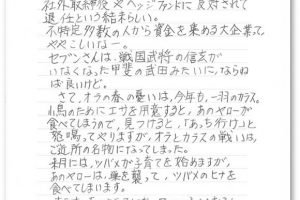 社外取締役やヘッジファンドに反対されて
退任という結末らしい。
不特定多数の人から資金を集める大企業で
ややこしいなー。
セブンさんは、戦国武将の信玄が
いなくなった甲斐の武田みたいに、ならね
ば良いけど。
さて、オラの春の憂いは、今年も、一羽のカラス。
小鳥のためにエサを用意すると、あのヤローが
食べてしまうので、見つけると、「あっち行け」と
恐喝してやりますが、オラとカラスの戦いは、
ご近所の名物になってしまった。
来月には、ツバメが子育てを始めますが、
あのヤローは、巣を襲って、ツバメのヒナを
食べてしまいます。